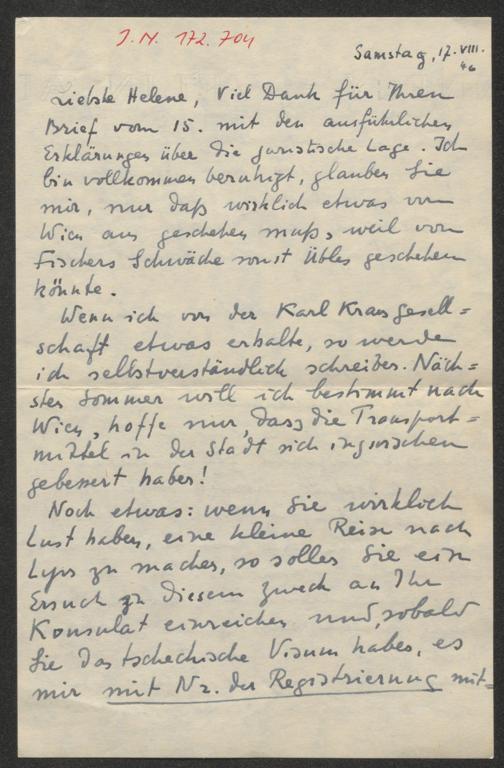 J.N. 172.704
Samstag, 17. VIII.
46
Liebste Helene, Viel Dank für Ihren
Brief vom 15. mit den ausführlichen
Erklärungen über die juristische Lage. Ich
bin vollkommen beruhigt, glauben Sie
mir, nur daß wirklich etwas von
Wien aus geschehen muß, weil von
Fischers Schwäche sonst Übles geschehen
könnte.
Wenn ich von der Karl Kraus gesell=
schaft etwas erhalte, so werde
ich selbstverständlich schreiben. Näch=
sten Sommer will ich bestimmt nach
Wien, hoffe nur, dass die Transport=
mittel in der Stadt sich inzwischen
gebessert haben!
Noch etwas: wenn Sie wirklich
Lust haben, eine kleine Reise nach
zu machen, so sollen Sie ein
Ersuch zu diesem Zweck an Ihr
Konsulat einreichen und, sobald
Sie das tschechische Visum haben, es
mir mit Nr. der Registrierung mit=